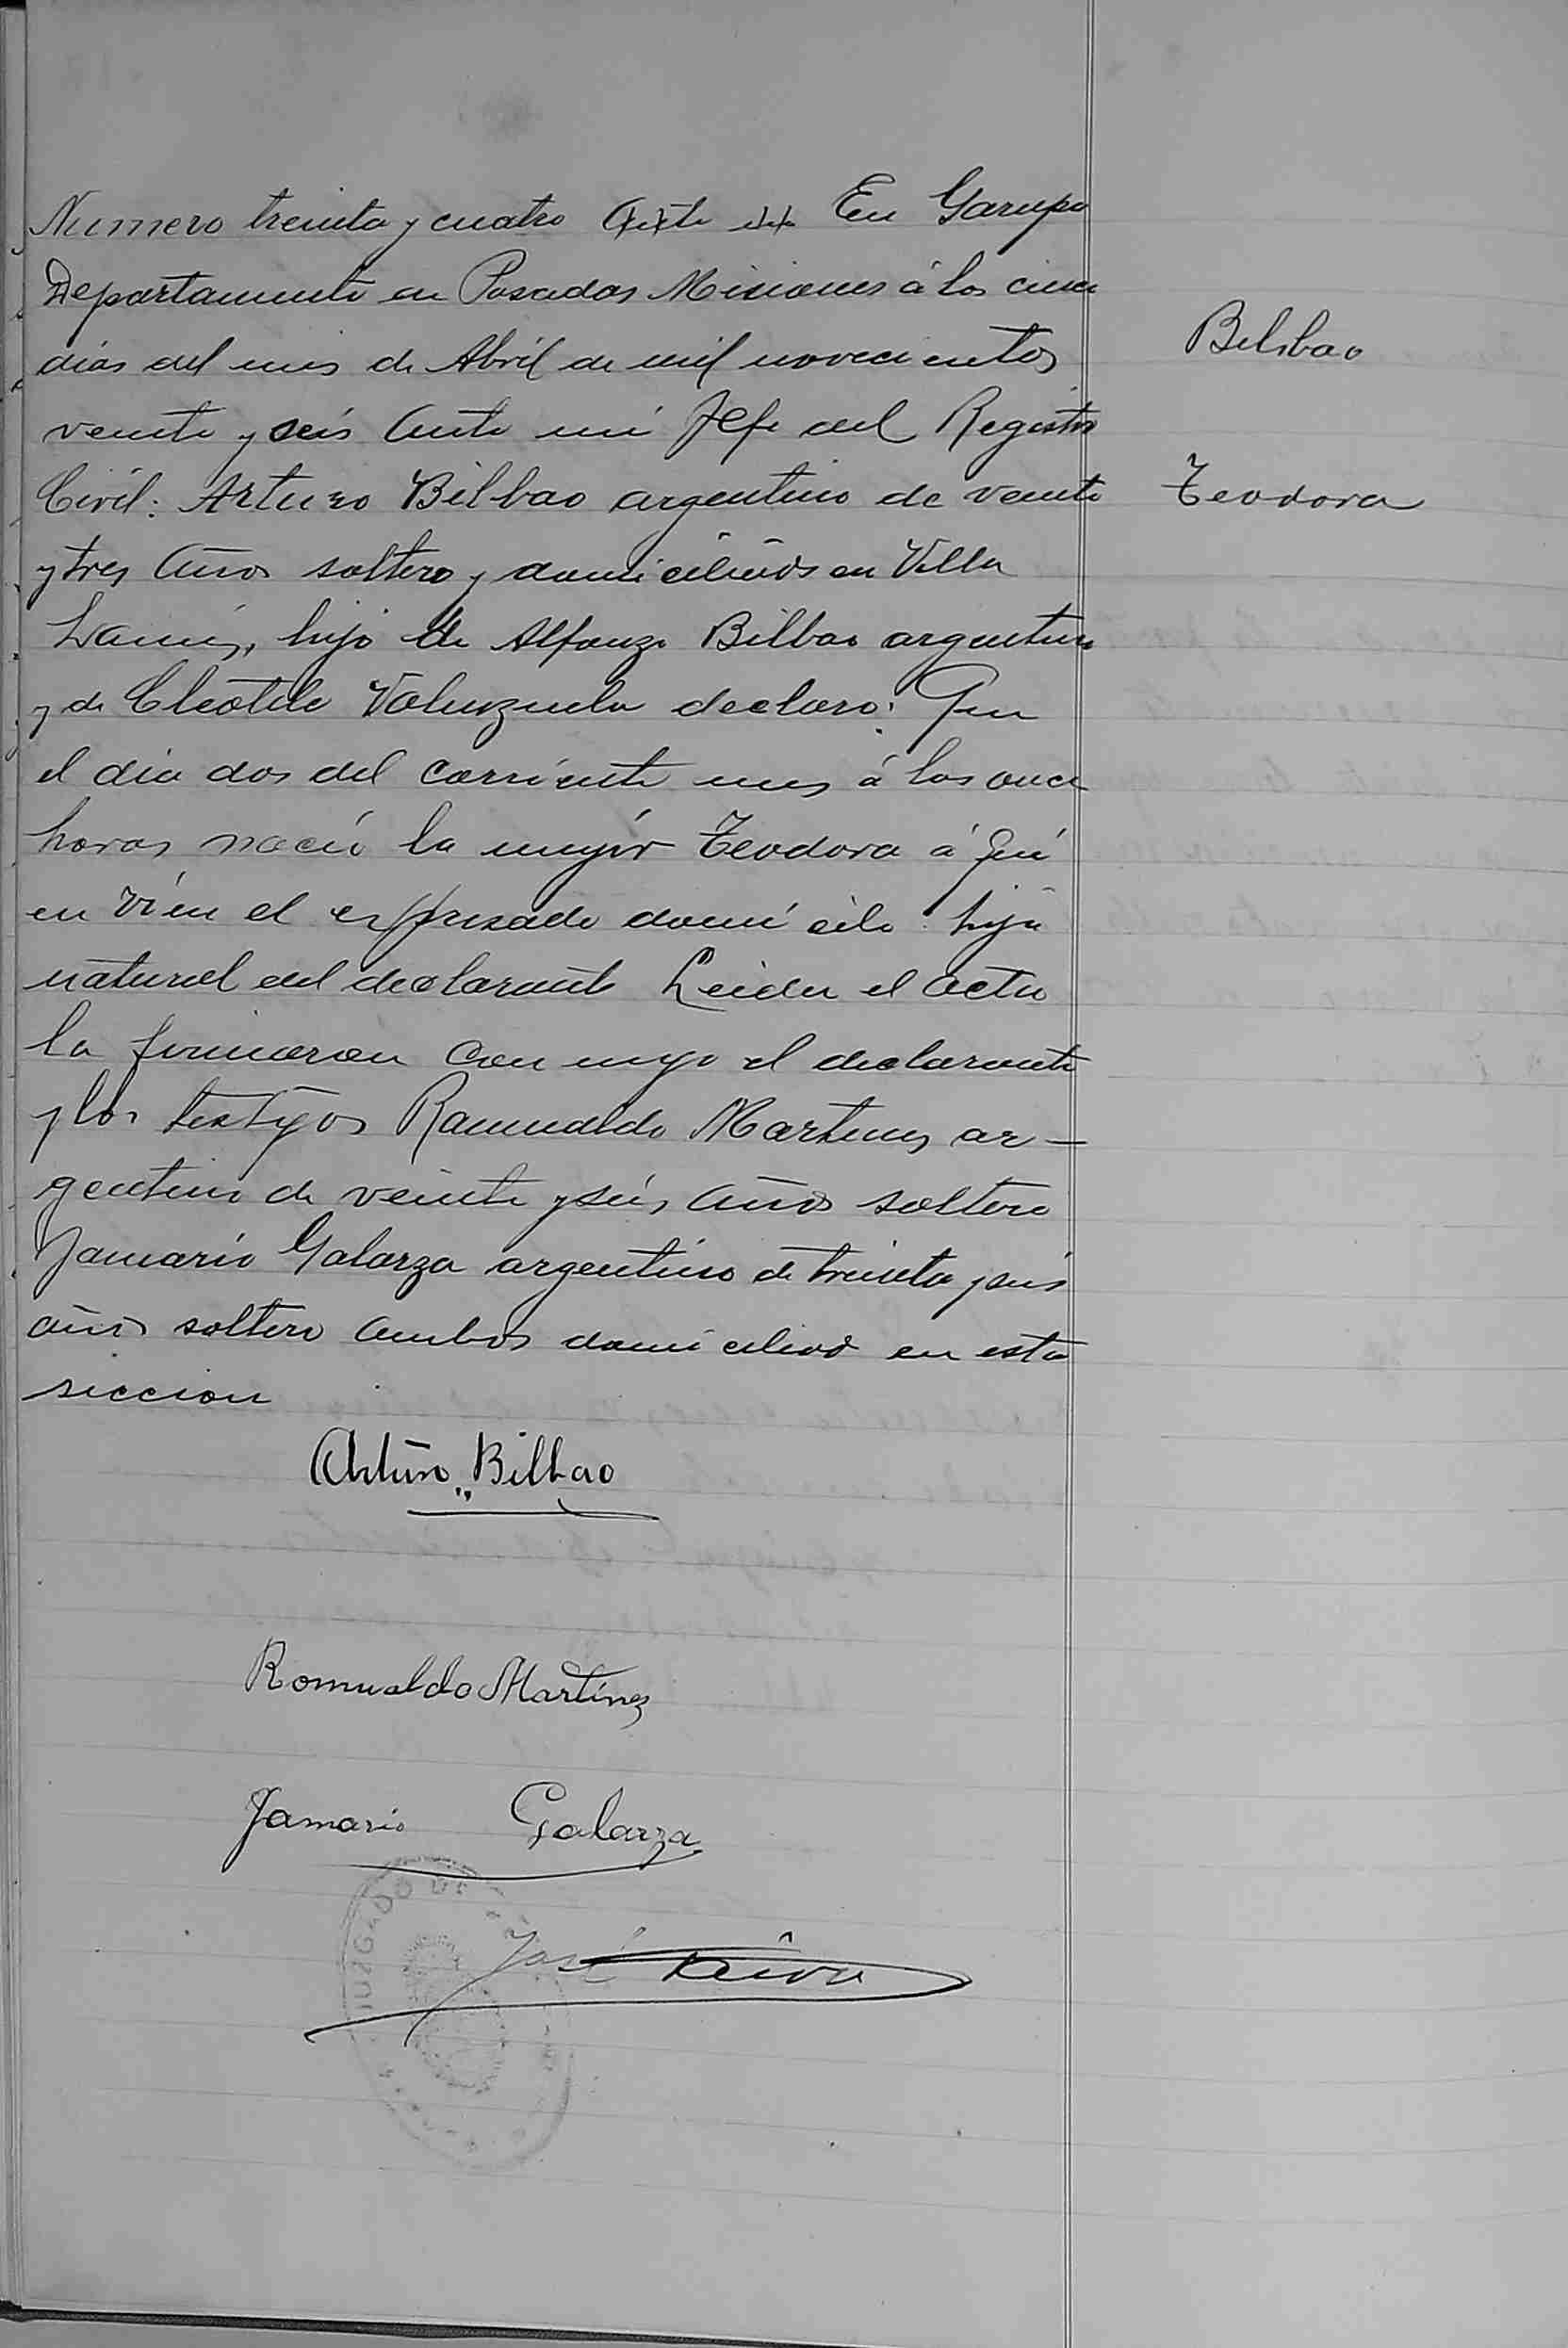 Numero treinta y cuatro En Garupa
Departamento en Posadas Misiones á los cinco
dias del mes de Abril de mil novecientos
veinte y seis Ante mi Jefe del Registro
Civil: Arturo Bilbao argentino de veinte
y tres años soltero y domiciliado en Villa
Lanús, hijo de Alfonzo Bilbao argentino
y de Cleotilde Valenzuela declaro: Que
el dia dos del corriente mes á las once
horas nació la mujer Teodora á qui
en vi en el expresado domicilo hija
natural del declarante Leida el acta
la firmaron con migo el declarante
y los testigos Ramualdo Martines ar-
gentino de veinte y seis años soltero
Januario Galarza argentino de treinta y seis
años soltero ambos domiciliados en esta
siccion
Bilbao
Teodora
Arturo Bilbao
Romualdo Martínez
Januario Galarza
José
JUZGADO DE